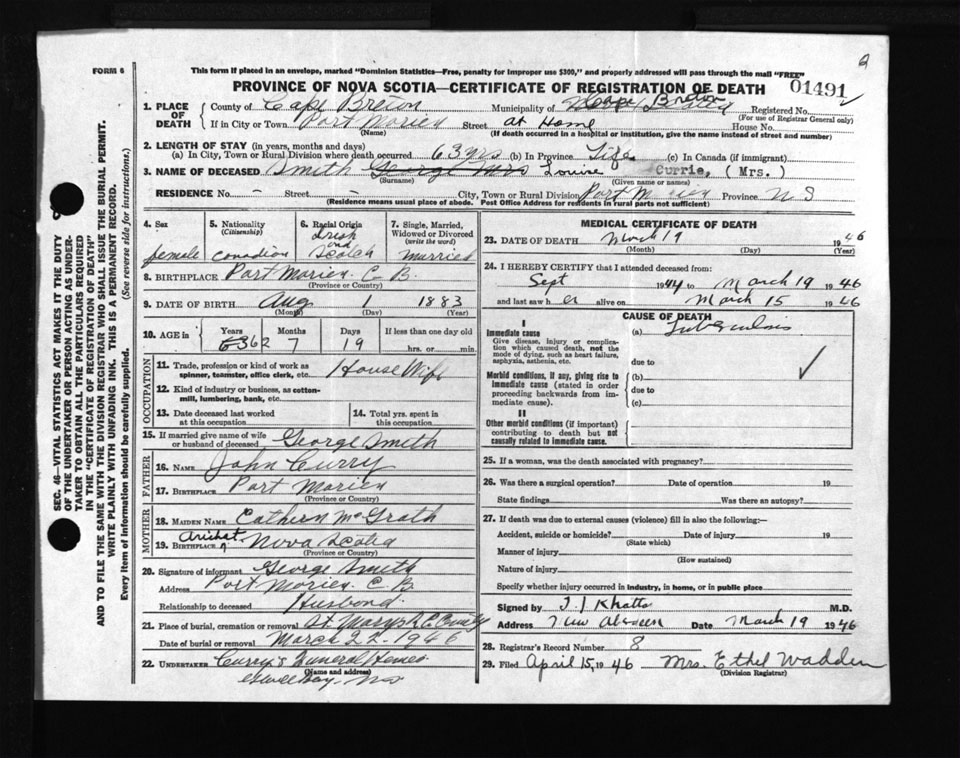 2
FORM 6
This form if placed in an envelope, marked "Dominion Statistics—Free, penalty for improper use $300," and properly addressed will pass through the mail "FREE"
PROVINCE OF NOVA SCOTIA—CERTIFICATE OF REGISTRATION OF DEATH
01491
1. PLACE OF DEATH
County of Cape Breton Municipality of Cape Breton Registered No.
(For use of Registrar General only)
If in City or Town Port Morien Street at Home House No.
(Name) (If death occurred in a hospital or institution, give the name instead of street and number)
2. LENGTH OF STAY (in years, months and days)
(a) In City, Town or Rural Division where death occurred 63 yrs (b) In Province Life (c) In Canada (if immigrant)
3. NAME OF DECEASED Smith George Mrs Louise Currie, (Mrs.)
(Surname) (Given name or names)
RESIDENCE No. - Street - City, Town or Rural Division Port Morien Province N S
(Residence means usual place of abode. Post Office Address for residents in rural parts not sufficient)
4. Sex female
5. Nationality (Citizenship) Canadian
6. Racial Origin Irish and Scotch
7. Single, Married, Widowed or Divorced (write the word) Married
8. BIRTHPLACE Port Morien C B.
(Province or Country)
9. DATE OF BIRTH Aug 1 1883
(Month) (Day) (Year)
10. AGE in Years 63 62 Months 7 Days 19 If less than one day old hrs. or min.
OCCUPATION
11. Trade, profession or kind of work as spinner, teamster, office clerk, etc. House Wife
12. Kind of industry or business, as cotton-mill, lumbering, bank, etc.
13. Date deceased last worked at this occupation
14. Total yrs. spent in this occupation
15. If married give name of wife or husband of deceased George Smith
FATHER
16. NAME John Curry
17. BIRTHPLACE Port Morien
(Province or Country)
MOTHER
18. MAIDEN NAME Cathern McGrath
19. BIRTHPLACE Arichat Nova Scotia
(Province or Country)
20. Signature of informant George Smith
Address Port Morien C B.
Relationship to deceased Husband
21. Place of burial, cremation or removal St. Marys R C
Date of burial or removal March 22 - 1946
22. UNDERTAKER Curry's Funeral Homes
(Name and address)
Bay NS
MEDICAL CERTIFICATE OF DEATH
23. DATE OF DEATH March 19 1946
(Month) (Day) (Year)
24. I HEREBY CERTIFY that I attended deceased from:
Sept 1944 to March 19 1946
and last saw her alive on March 15 1946
CAUSE OF DEATH
I
Immediate cause
Give disease, injury or complication which caused death, not the mode of dying, such as heart failure, asphyxia, asthenia, etc.
(a) Tuberculosis
due to
Morbid conditions, if any, giving rise to immediate cause (stated in order proceeding backwards from immediate cause).
(b)
due to
(c)
II
Other morbid conditions (if important) contributing to death but not causally related to immediate cause.
25. If a woman, was the death associated with pregnancy?
26. Was there a surgical operation? Date of operation 19
State findings Was there an autopsy?
27. If death was due to external causes (violence) fill in also the following:—
Accident, suicide or homicide? Date of injury 19
(State which)
Manner of injury
(How sustained)
Nature of injury
Specify whether injury occurred in industry, in home, or in public place
Signed by M.D.
Address Date March 19 1946
28. Registrar's Record Number 8
29. Filed April 15, 1946 Mrs. Ethel Wadden
(Division Registrar)
SEC. 46—VITAL STATISTICS ACT MAKES IT THE DUTY
OF THE UNDERTAKER OR PERSON ACTING AS UNDER-
TAKER TO OBTAIN ALL THE PARTICULARS REQUIRED
IN THE "CERTIFICATE OF REGISTRATION OF DEATH"
AND TO FILE THE SAME WITH THE DIVISION REGISTRAR WHO SHALL ISSUE THE BURIAL PERMIT.
WRITE PLAINLY WITH UNFADING INK. THIS IS A PERMANENT RECORD.
Every item of information should be carefully supplied. (See reverse side for instructions.)